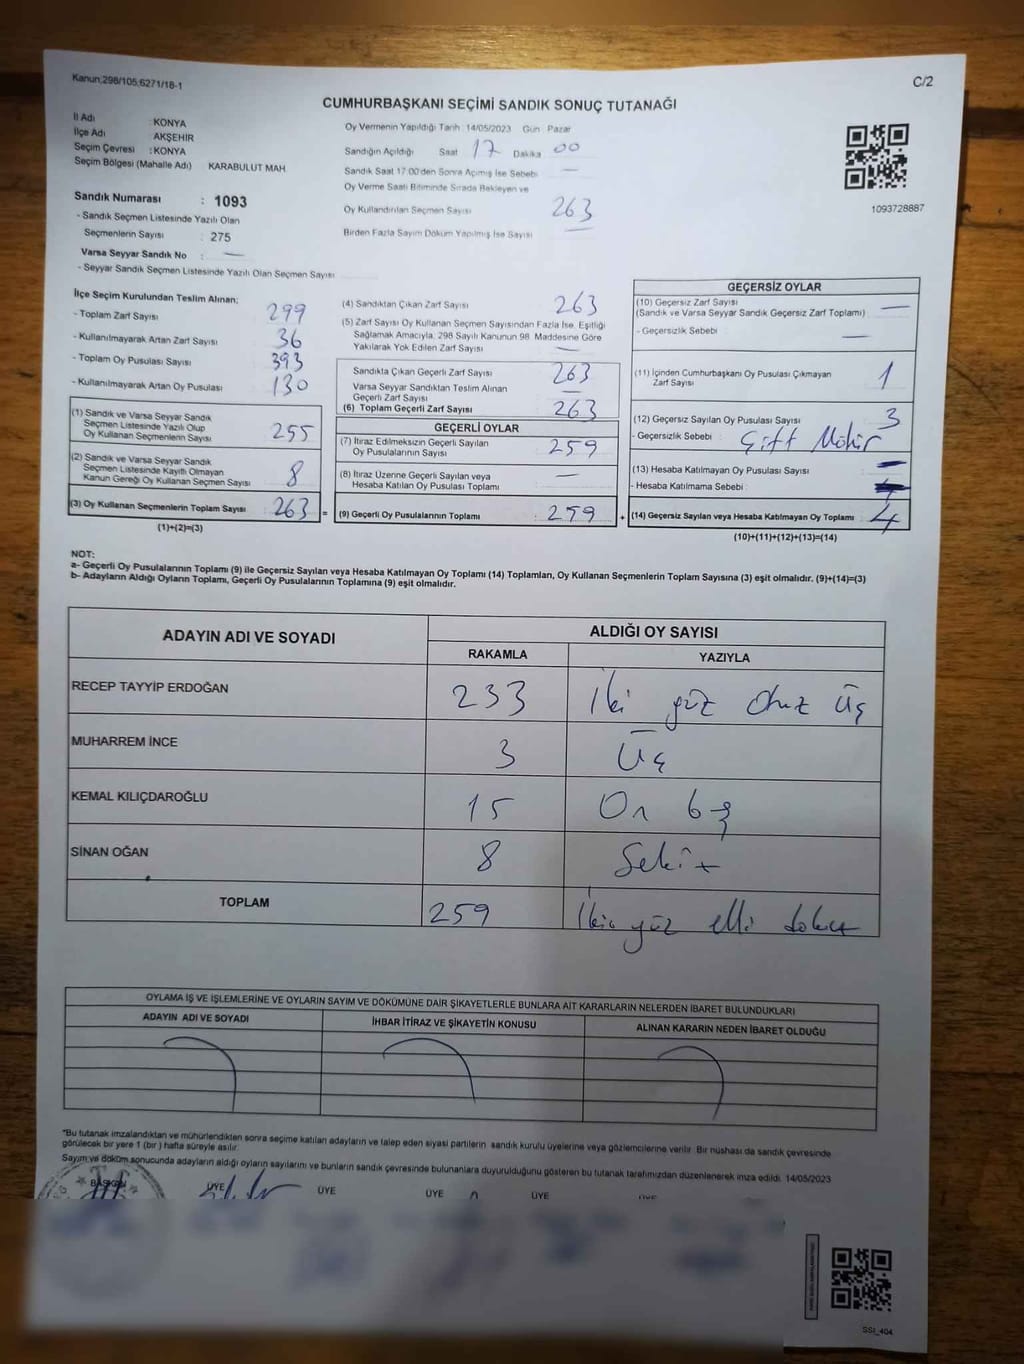 Kanun;298/105;6271/18-1
C/2
CUMHURBAŞKANI SEÇİMİ SANDIK SONUÇ TUTANAĞI
İl Adı : KONYA
İlçe Adı AKŞEHİR
Seçim Çevresi : KONYA
Seçim Bölgesi (Mahalle Adı) KARABULUT MAH.
Sandık Numarası : 1093
- Sandık Seçmen Listesinde Yazılı Olan
Seçmenlerin Sayısı : 275
Varsa Seyyar Sandık No : —
- Seyyar Sandık Seçmen Listesinde Yazılı Olan Seçmen Sayısı
Oy Vermenin Yapıldığı Tarih 14/05/2023 Gün Pazar
Sandığın Açıldığı Saat 17 Dakika 00
Sandık Saat 17.00'den Sonra Açılmış İse Sebebi —
Oy Verme Saati Bitiminde Sırada Bekleyen ve
Oy Kullandırılan Seçmen Sayısı 263
Birden Fazla Sayım Döküm Yapılmış İse Sayısı —
1093728887
İlçe Seçim Kurulundan Teslim Alınan;
- Toplam Zarf Sayısı 299
- Kullanılmayarak Artan Zarf Sayısı 36
- Toplam Oy Pusulası Sayısı 393
- Kullanılmayarak Artan Oy Pusulası 130
(1) Sandık ve Varsa Seyyar Sandık
Seçmen Listesinde Yazılı Olup
Oy Kullanan Seçmenlerin Sayısı 255
(2) Sandık ve Varsa Seyyar Sandık
Seçmen Listesinde Kayıtlı Olmayan
Kanun Gereği Oy Kullanan Seçmen Sayısı 8
(3) Oy Kullanan Seçmenlerin Toplam Sayısı 263 =
(1)+(2)=(3)
(4) Sandıktan Çıkan Zarf Sayısı 263
(5) Zarf Sayısı Oy Kullanan Seçmen Sayısından Fazla İse, Eşitliği
Sağlamak Amacıyla, 298 Sayılı Kanunun 98. Maddesine Göre
Yakılarak Yok Edilen Zarf Sayısı —
Sandıkta Çıkan Geçerli Zarf Sayısı 263
Varsa Seyyar Sandıktan Teslim Alınan
Geçerli Zarf Sayısı —
(6) Toplam Geçerli Zarf Sayısı 263
GEÇERLİ OYLAR
(7) İtiraz Edilmeksizin Geçerli Sayılan
Oy Pusulalarının Sayısı 259
(8) İtiraz Üzerine Geçerli Sayılan veya
Hesaba Katılan Oy Pusulası Toplamı —
(9) Geçerli Oy Pusulalarının Toplamı : 259 +
GEÇERSİZ OYLAR
(10) Geçersiz Zarf Sayısı
(Sandık ve Varsa Seyyar Sandık Geçersiz Zarf Toplamı) —
- Geçersizlik Sebebi : —
(11) İçinden Cumhurbaşkanı Oy Pusulası Çıkmayan
Zarf Sayısı 1
(12) Geçersiz Sayılan Oy Pusulası Sayısı 3
- Geçersizlik Sebebi : Çift Mühür
(13) Hesaba Katılmayan Oy Pusulası Sayısı —
- Hesaba Katılmama Sebebi :
(14) Geçersiz Sayılan veya Hesaba Katılmayan Oy Toplamı 4
(10)+(11)+(12)+(13)=(14)
NOT:
a- Geçerli Oy Pusulalarının Toplamı (9) ile Geçersiz Sayılan veya Hesaba Katılmayan Oy Toplamı (14) Toplamları, Oy Kullanan Seçmenlerin Toplam Sayısına (3) eşit olmalıdır. (9)+(14)=(3)
b- Adayların Aldığı Oyların Toplamı, Geçerli Oy Pusulalarının Toplamına (9) eşit olmalıdır.
ADAYIN ADI VE SOYADI ALDIĞI OY SAYISI
RAKAMLA YAZIYLA
RECEP TAYYİP ERDOĞAN 233 İki yüz otuz üç
MUHARREM İNCE 3 Üç
KEMAL KILIÇDAROĞLU 15 On beş
SİNAN OĞAN 8 Sekiz
TOPLAM 259 İki yüz elli dokuz
OYLAMA İŞ VE İŞLEMLERİNE VE OYLARIN SAYIM VE DÖKÜMÜNE DAİR ŞİKAYETLERLE BUNLARA AİT KARARLARIN NELERDEN İBARET BULUNDUKLARI
ADAYIN ADI VE SOYADI İHBAR İTİRAZ VE ŞİKAYETİN KONUSU ALINAN KARARIN NEDEN İBARET OLDUĞU
"Bu tutanak imzalandıktan ve mühürlendikten sonra seçime katılan adayların ve talep eden siyasi partilerin sandık kurulu üyelerine veya gözlemcilerine verilir. Bir nüshası da sandık çevresinde
görülecek bir yere 1 (bir) hafta süreyle asılır.
Sayım ve döküm sonucunda adayların aldığı oyların sayılarını ve bunların sandık çevresinde bulunanlara duyurulduğunu gösteren bu tutanak tarafımızdan düzenlenerek imza edildi. 14/05/2023
BAŞKAN ÜYE ÜYE ÜYE ÜYE ÜYE
SSİ_404